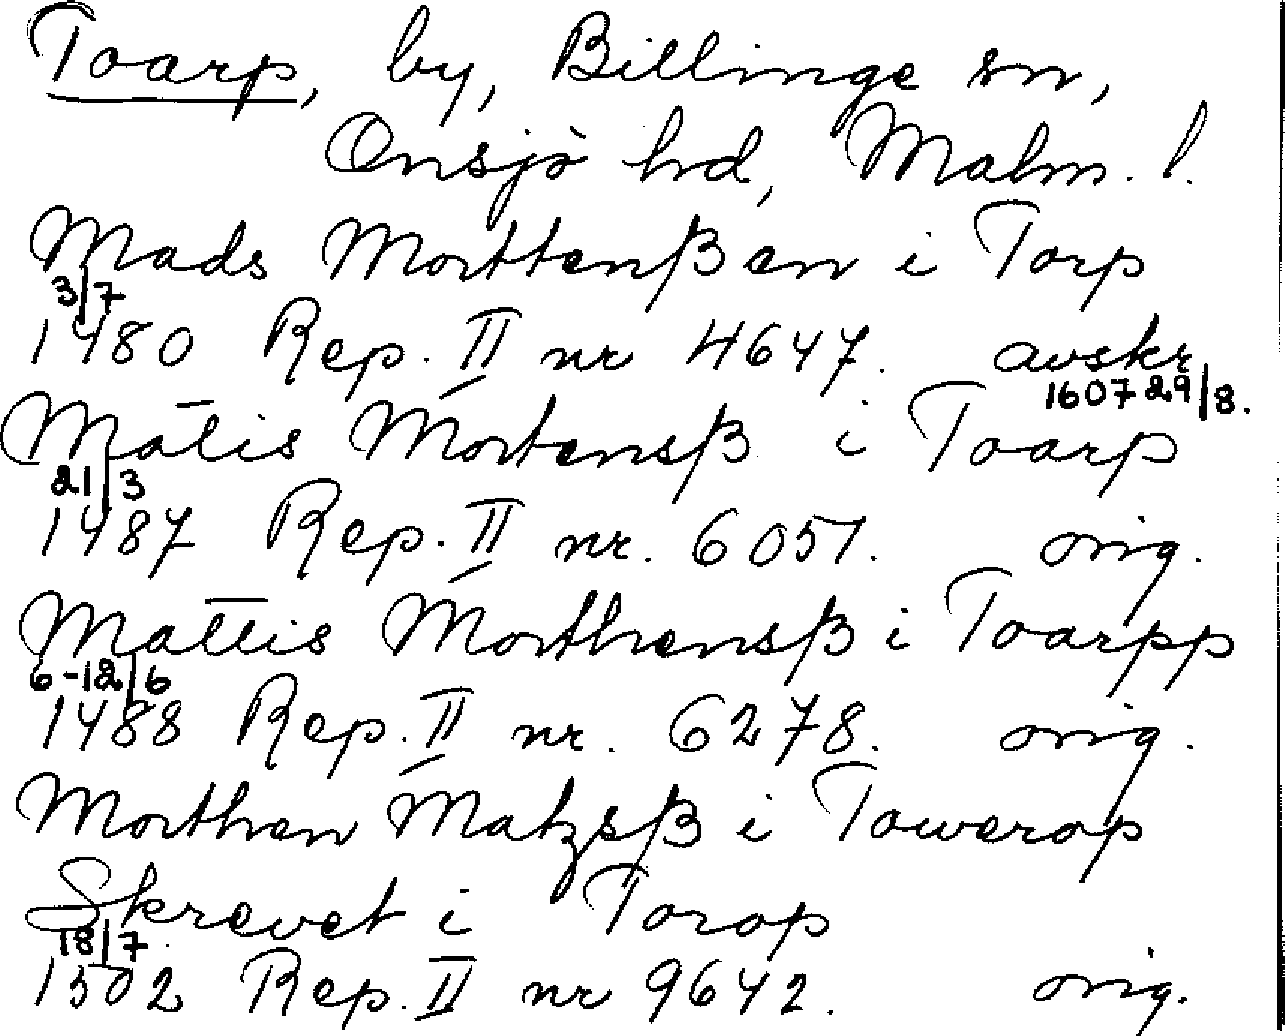 Toarp, by, Billinge sn,
Onsjö hd, Malm. l.
Mads MorttenßEn i Torp
3/7
1480 Rep. II nr 4647. avskr
1607 29/8.
Mātis Mortensß i Toarp
21/3
1487 Rep. II nr. 6051. orig.
Mattis Morthensß i Toarpp
6-12/6
1488 Rep. II nr. 6278. orig.
Morthen Matzsß i Towerop
Skrevet i Torop
18/7.
1502 Rep. II nr 9642. orig.